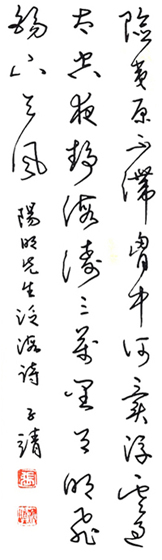 險夷原不滯胷中何異浮雲過
太空夜靜海濤三萬里月明飛
錫下天風 陽明先生泛海詩 子靖